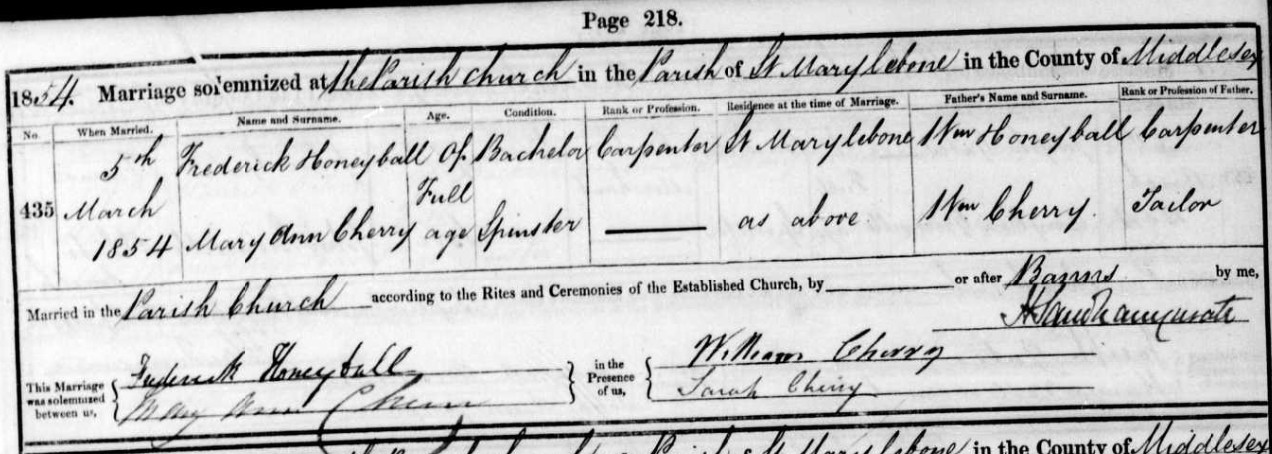 Page 218.
1854. Marriage solemnized at the Parish Church in the Parish of St Marylebone in the County of Middlesex
No. When Married. Name and Surname. Age. Condition. Rank or Profession. Residence at the time of Marriage. Father's Name and Surname. Rank or Profession of Father.
5th Frederick Honeyball Of Bachelor Carpenter St Marylebone Wm Honeyball Carpenter
435 March Full
1854 Mary Ann Cherry age Spinster as above Wm Cherry Tailor
Married in the Parish Church according to the Rites and Ceremonies of the Established Church, by or after Banns by me,
Curate
This Marriage was solemnized between us, Frederick Honeyball in the Presence of us, William Cherry
Mary Ann Cherry Sarah Cherry
Marylebone in the County of Middlesex